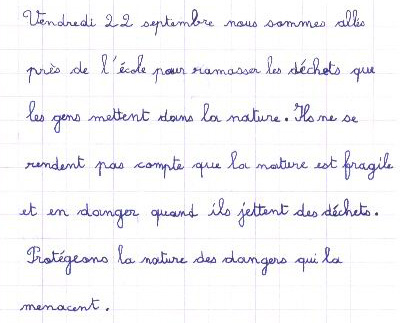 Vendredi 22 septembre nous sommes allés
près de l'école pour ramasser les déchets que
les gens mettent dans la nature. Ils ne se
rendent pas compte que la nature est fragile
et en danger quand ils jettent des déchets.
Protégeons la nature des dangers qui la
menacent.